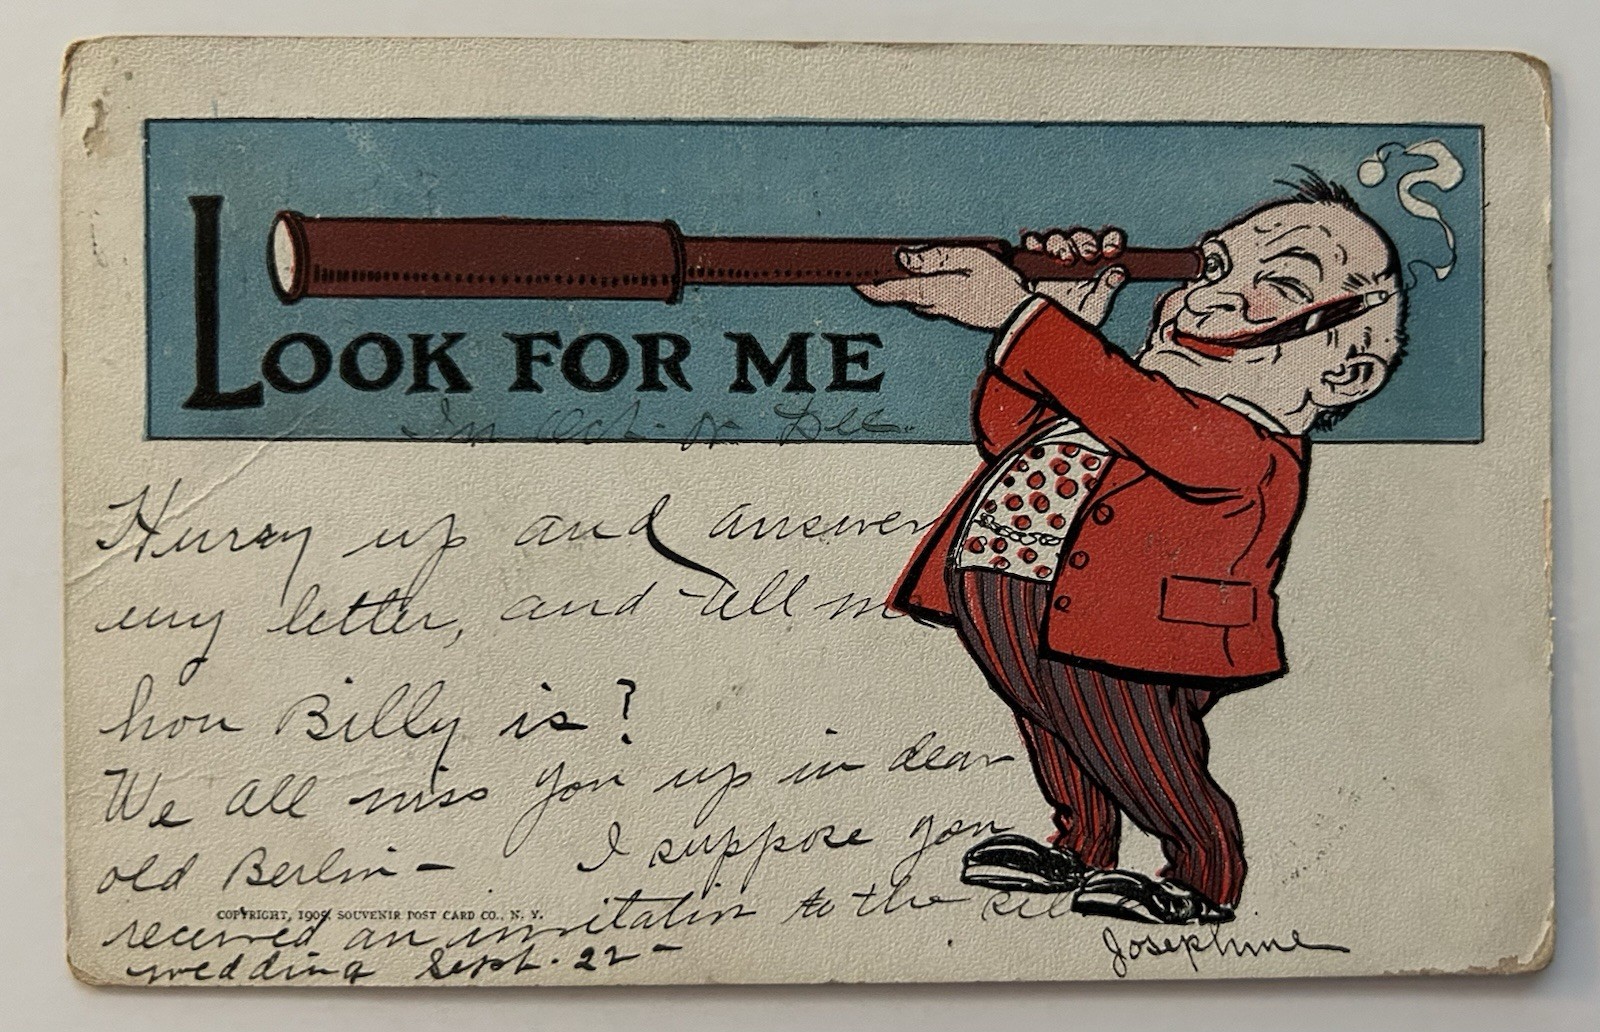 LOOK FOR ME
In Oct. or Dec.
Hurry up and answer
my letter, and tell me
how Billy is?
We all miss you up in dear
old Berlin —
I suppose you
received an invitation to the
wedding Sept. 22 —
COPYRIGHT, 1905, SOUVENIR POST CARD CO., N. Y.
Josephine